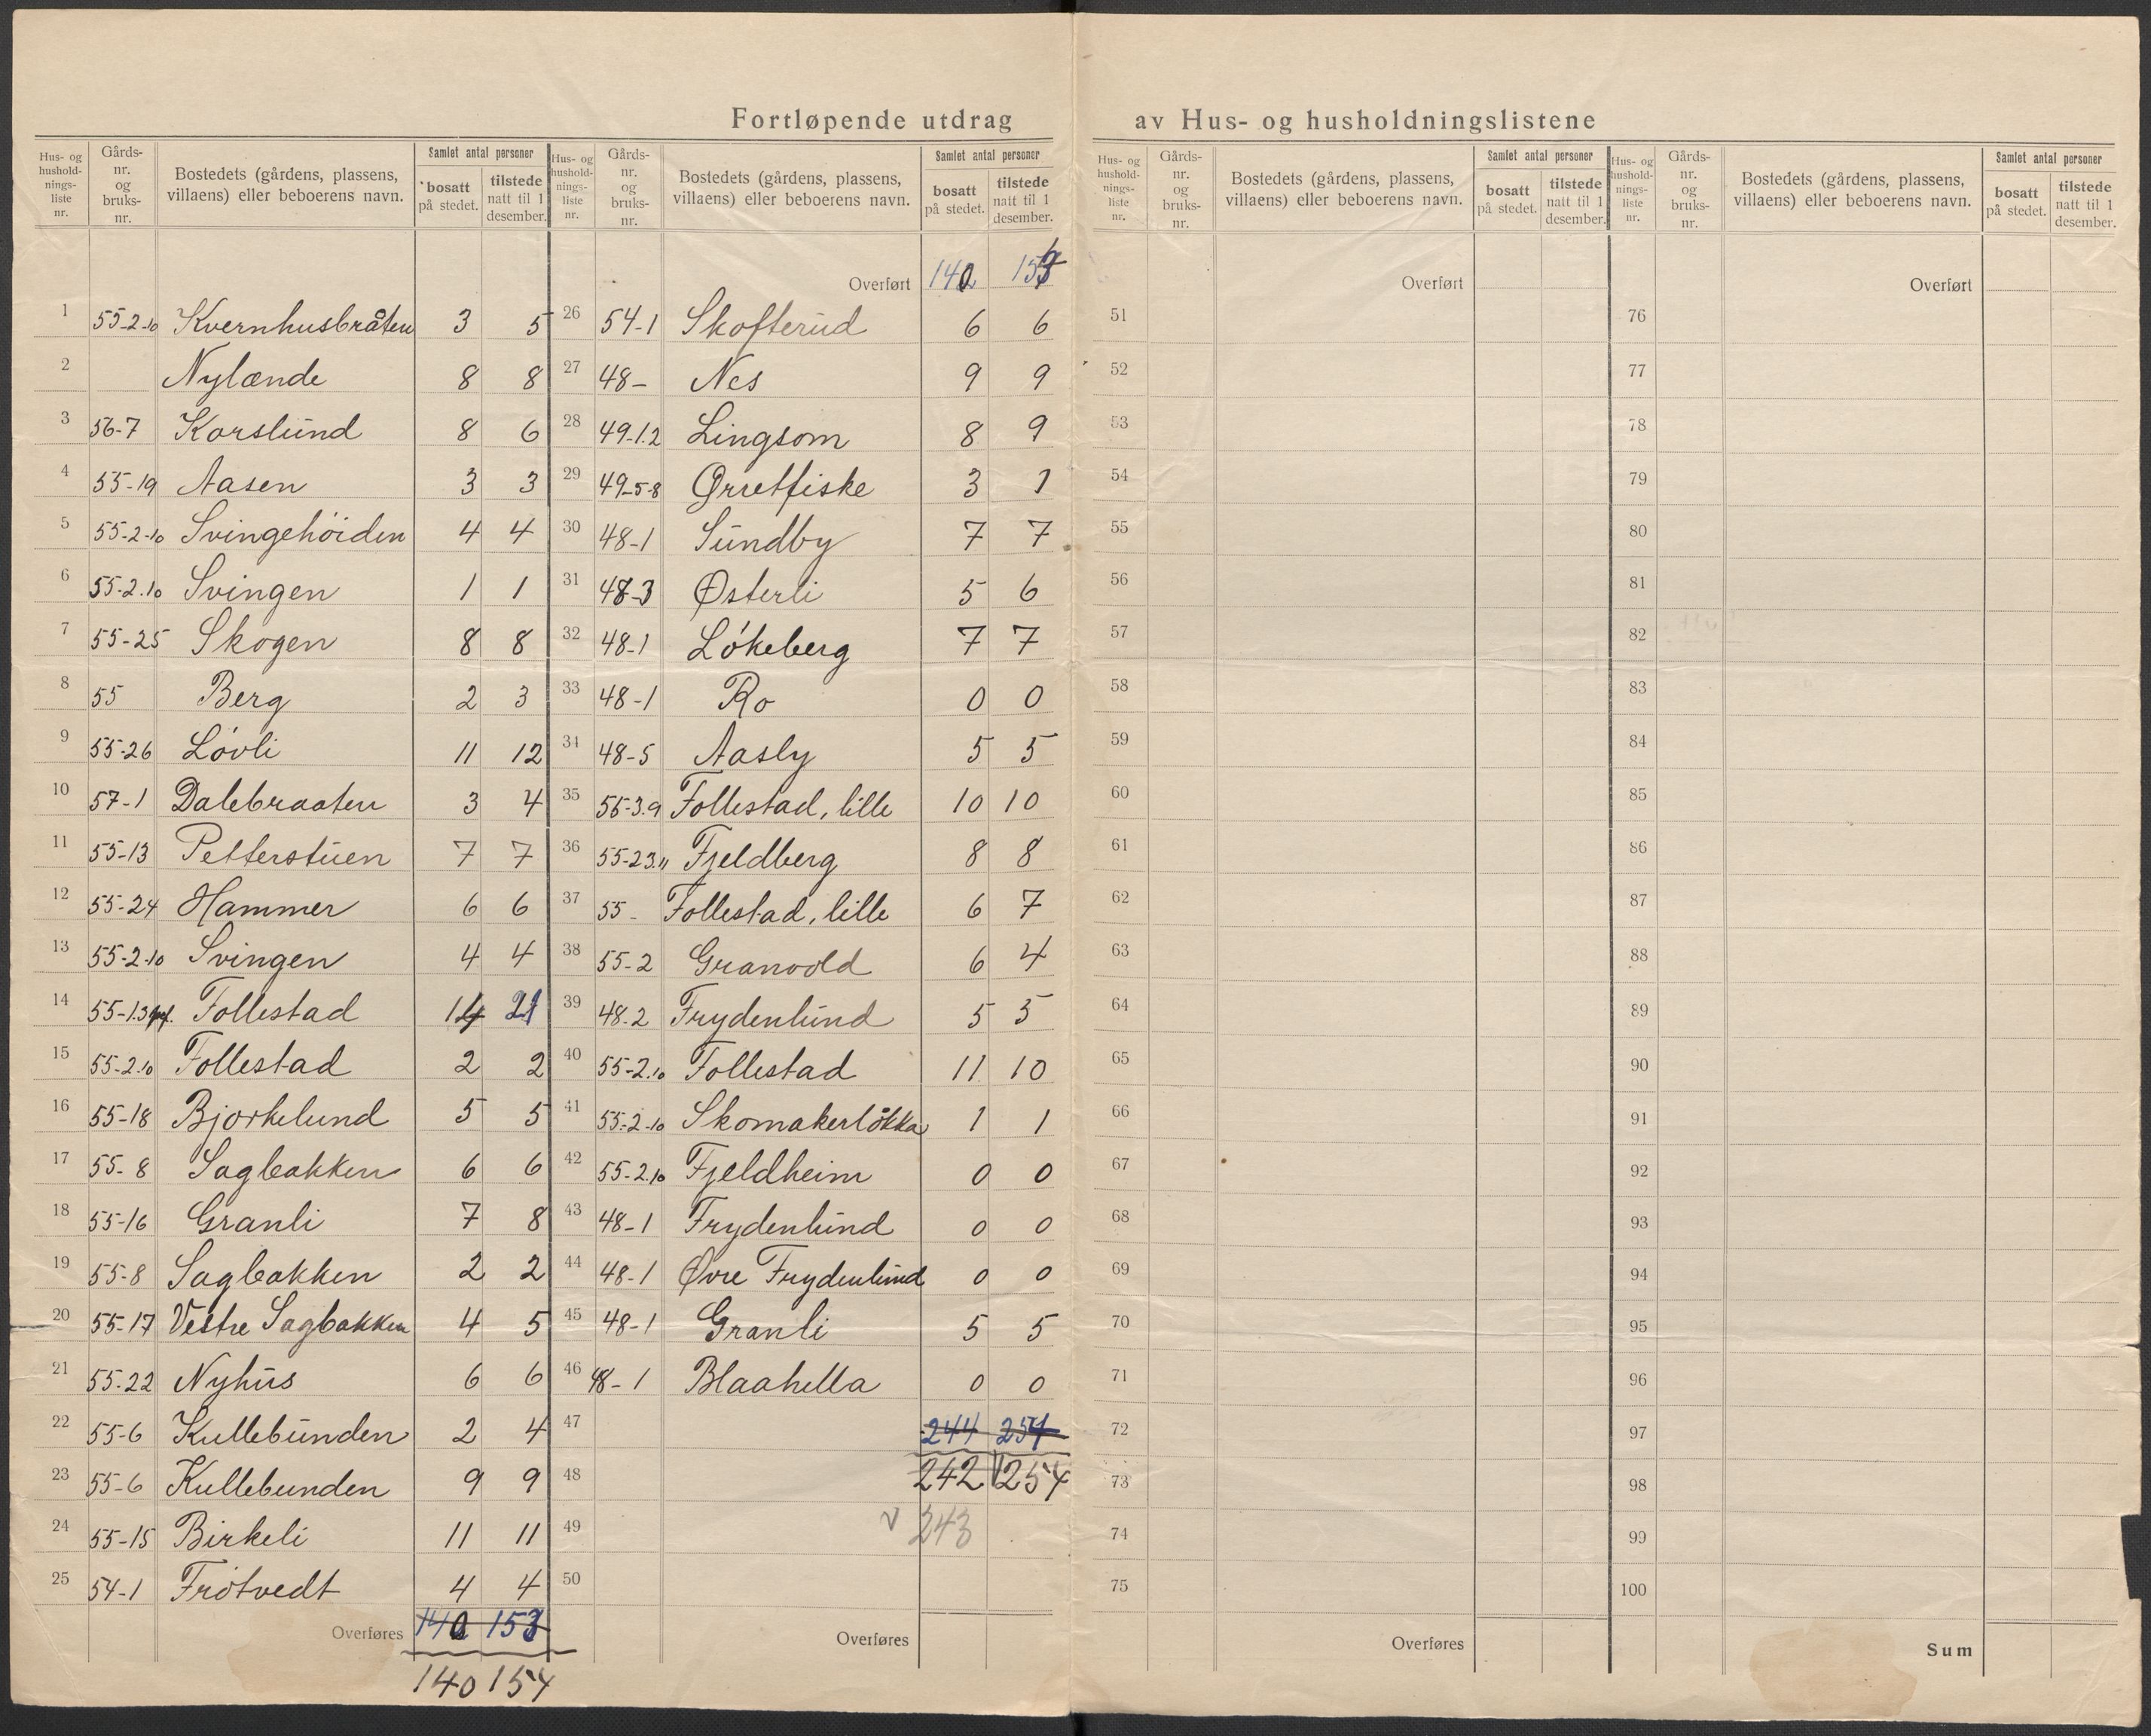 Fortløpende utdrag av Hus- og husholdningslistene
Hus- og hushold-nings-liste nr. Gårds-nr. og bruks-nr. Bostedets (gårdens, plassens, villaens) eller beboerens navn. Samlet antal personer bosatt på stedet. tilstede natt til 1 desember.
1 55-2-10 Kvernhusbråten 3 5
2 Nylænde 8 8
3 56-7 Korslund 8 6
4 55-19 Aasen 3 3
5 55-2-10 Svingehöiden 4 4
6 55-2.10 Svingen 1 1
7 55-25 Skogen 8 8
8 55 Berg 2 3
9 55-26 Lövli 11 12
10 57-1 Dalebraaten 3 4
11 55-13 Petterstuen 7 7
12 55-24 Hammer 6 6
13 55-2-10 Svingen 4 4
14 Follestad 14 21
15 55-2.10 Follestad 2 2
16 55-18 Bjorkelund 5 5
17 55-8 Sagbakken 6 6
18 55-16 Granli 7 8
19 55-8 Sagbakken 2 2
20 55-17 Vestre Sagbakken 4 5
21 55-22 Nyhus 6 6
22 55-6 Kullebunden 2 4
23 55-6 Kullebunden 9 9
24 55-15 Birkeli 11 11
25 54-1 Frötvedt 4 4
Overføres 140 153
140 154
Hus- og hushold-nings-liste nr. Gårds-nr. og bruks-nr. Bostedets (gårdens, plassens, villaens) eller beboerens navn. Samlet antal personer bosatt på stedet. tilstede natt til 1 desember.
Overført 140
26 54-1 Skofterud 6 6
27 48- Nes 9 9
28 49-1.2 Lingsom 8 9
29 49-5-8 Ørretfiske 3 1
30 48-1 Sundby 7 7
31 48-3 Østerli 5 6
32 48-1 Lökeberg 7 7
33 48-1 Ro 0 0
34 48-5 Aasly 5 5
35 55-3.9 Follestad, lille 10 10
36 55-23.11 Fjeldberg 8 8
37 55- Follestad, lille 6 7
38 55-2 Granvold 6 4
39 48.2 Frydenlund 5 5
40 55-2.10 Follestad 11 10
41 55-2-10 Skomakerlökka 1 1
42 55-2.10 Fjeldheim 0 0
43 48-1 Frydenlund 0 0
44 48-1 Øvre Frydenlund 0 0
45 48-1 Granli 5 5
46 48-1 Blaahella 0 0
47 244 254
48 242 254
49 v 243
50
Overføres
Hus- og hushold-nings-liste nr. Gårds-nr. og bruks-nr. Bostedets (gårdens, plassens, villaens) eller beboerens navn. Samlet antal personer bosatt på stedet. tilstede natt til 1 desember.
Overført
51
52
53
54
55
56
57
58
59
60
61
62
63
64
65
66
67
68
69
70
71
72
73
74
75
Overføres
Hus- og hushold-nings-liste nr. Gårds-nr. og bruks-nr. Bostedets (gårdens, plassens, villaens) eller beboerens navn. Samlet antal personer bosatt på stedet. tilstede natt til 1 desember.
Overført
76
77
78
79
80
81
82
83
84
85
86
87
88
89
90
91
92
93
94
95
96
97
98
99
100
Sum